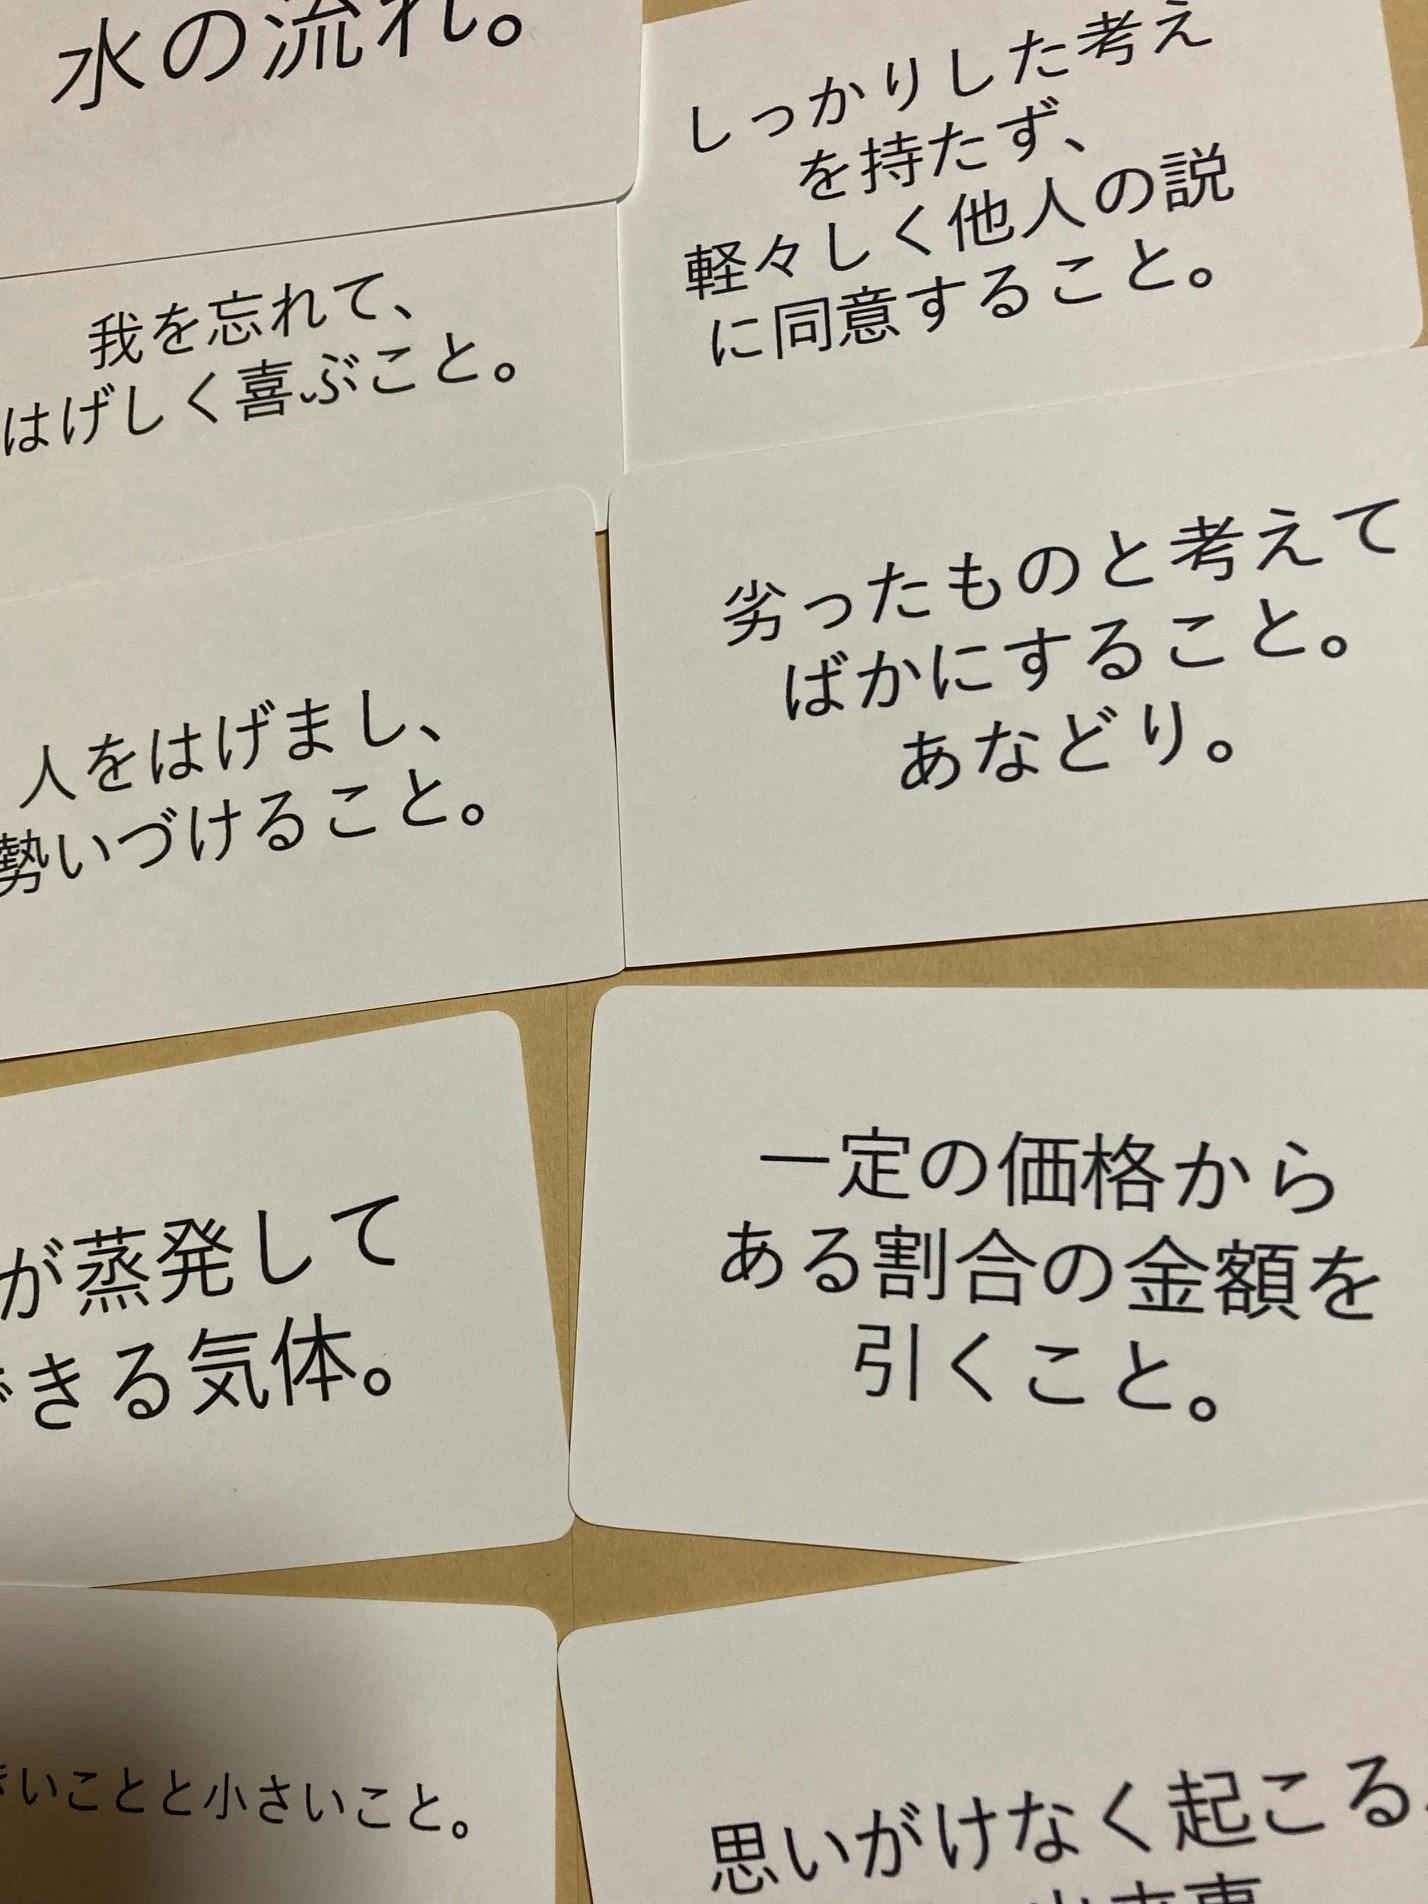 水の流れ。
しっかりした考え
を持たず、
軽々しく他人の説
に同意すること。
我を忘れて、
はげしく喜ぶこと。
劣ったものと考えて
ばかにすること。
あなどり。
人をはげまし、
勢いづけること。
が蒸発して
できる気体。
一定の価格から
ある割合の金額を
引くこと。
きいことと小さいこと。
思いがけなく起こる
出来事